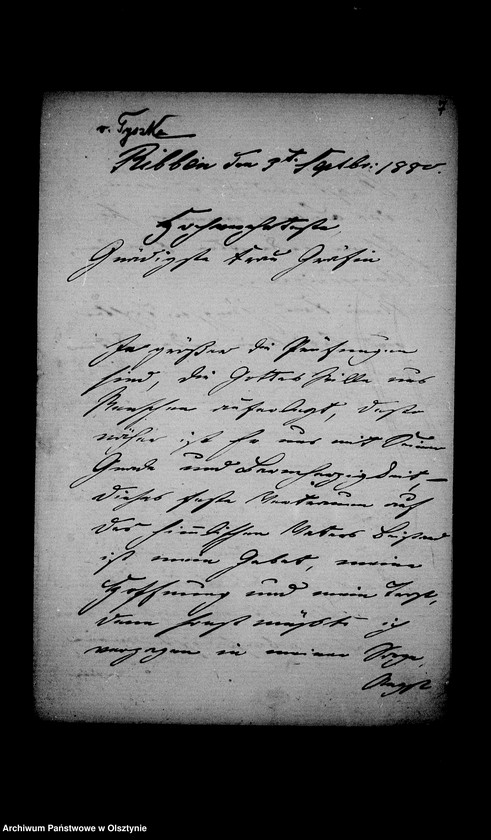 7
v. Tyszka
Ribben den 3t. Septbr: 1880.
Hochverehrteste,
Gnädigste Frau Gräfin
Je größer die Prüfungen
sind, die Gottes Wille uns
Menschen auferlegt, desto
näher ist Er uns mit Seiner
Gnade und Barmherzigkeit –
dieses feste Vertrauen auf
des himlischen Vaters Beistand
ist mein Gebet, meine
Hoffnung und mein Trost,
denn sonst müßte ich
vergehen in meiner Sorge,
Angst
Archiwum Państwowe w Olsztynie